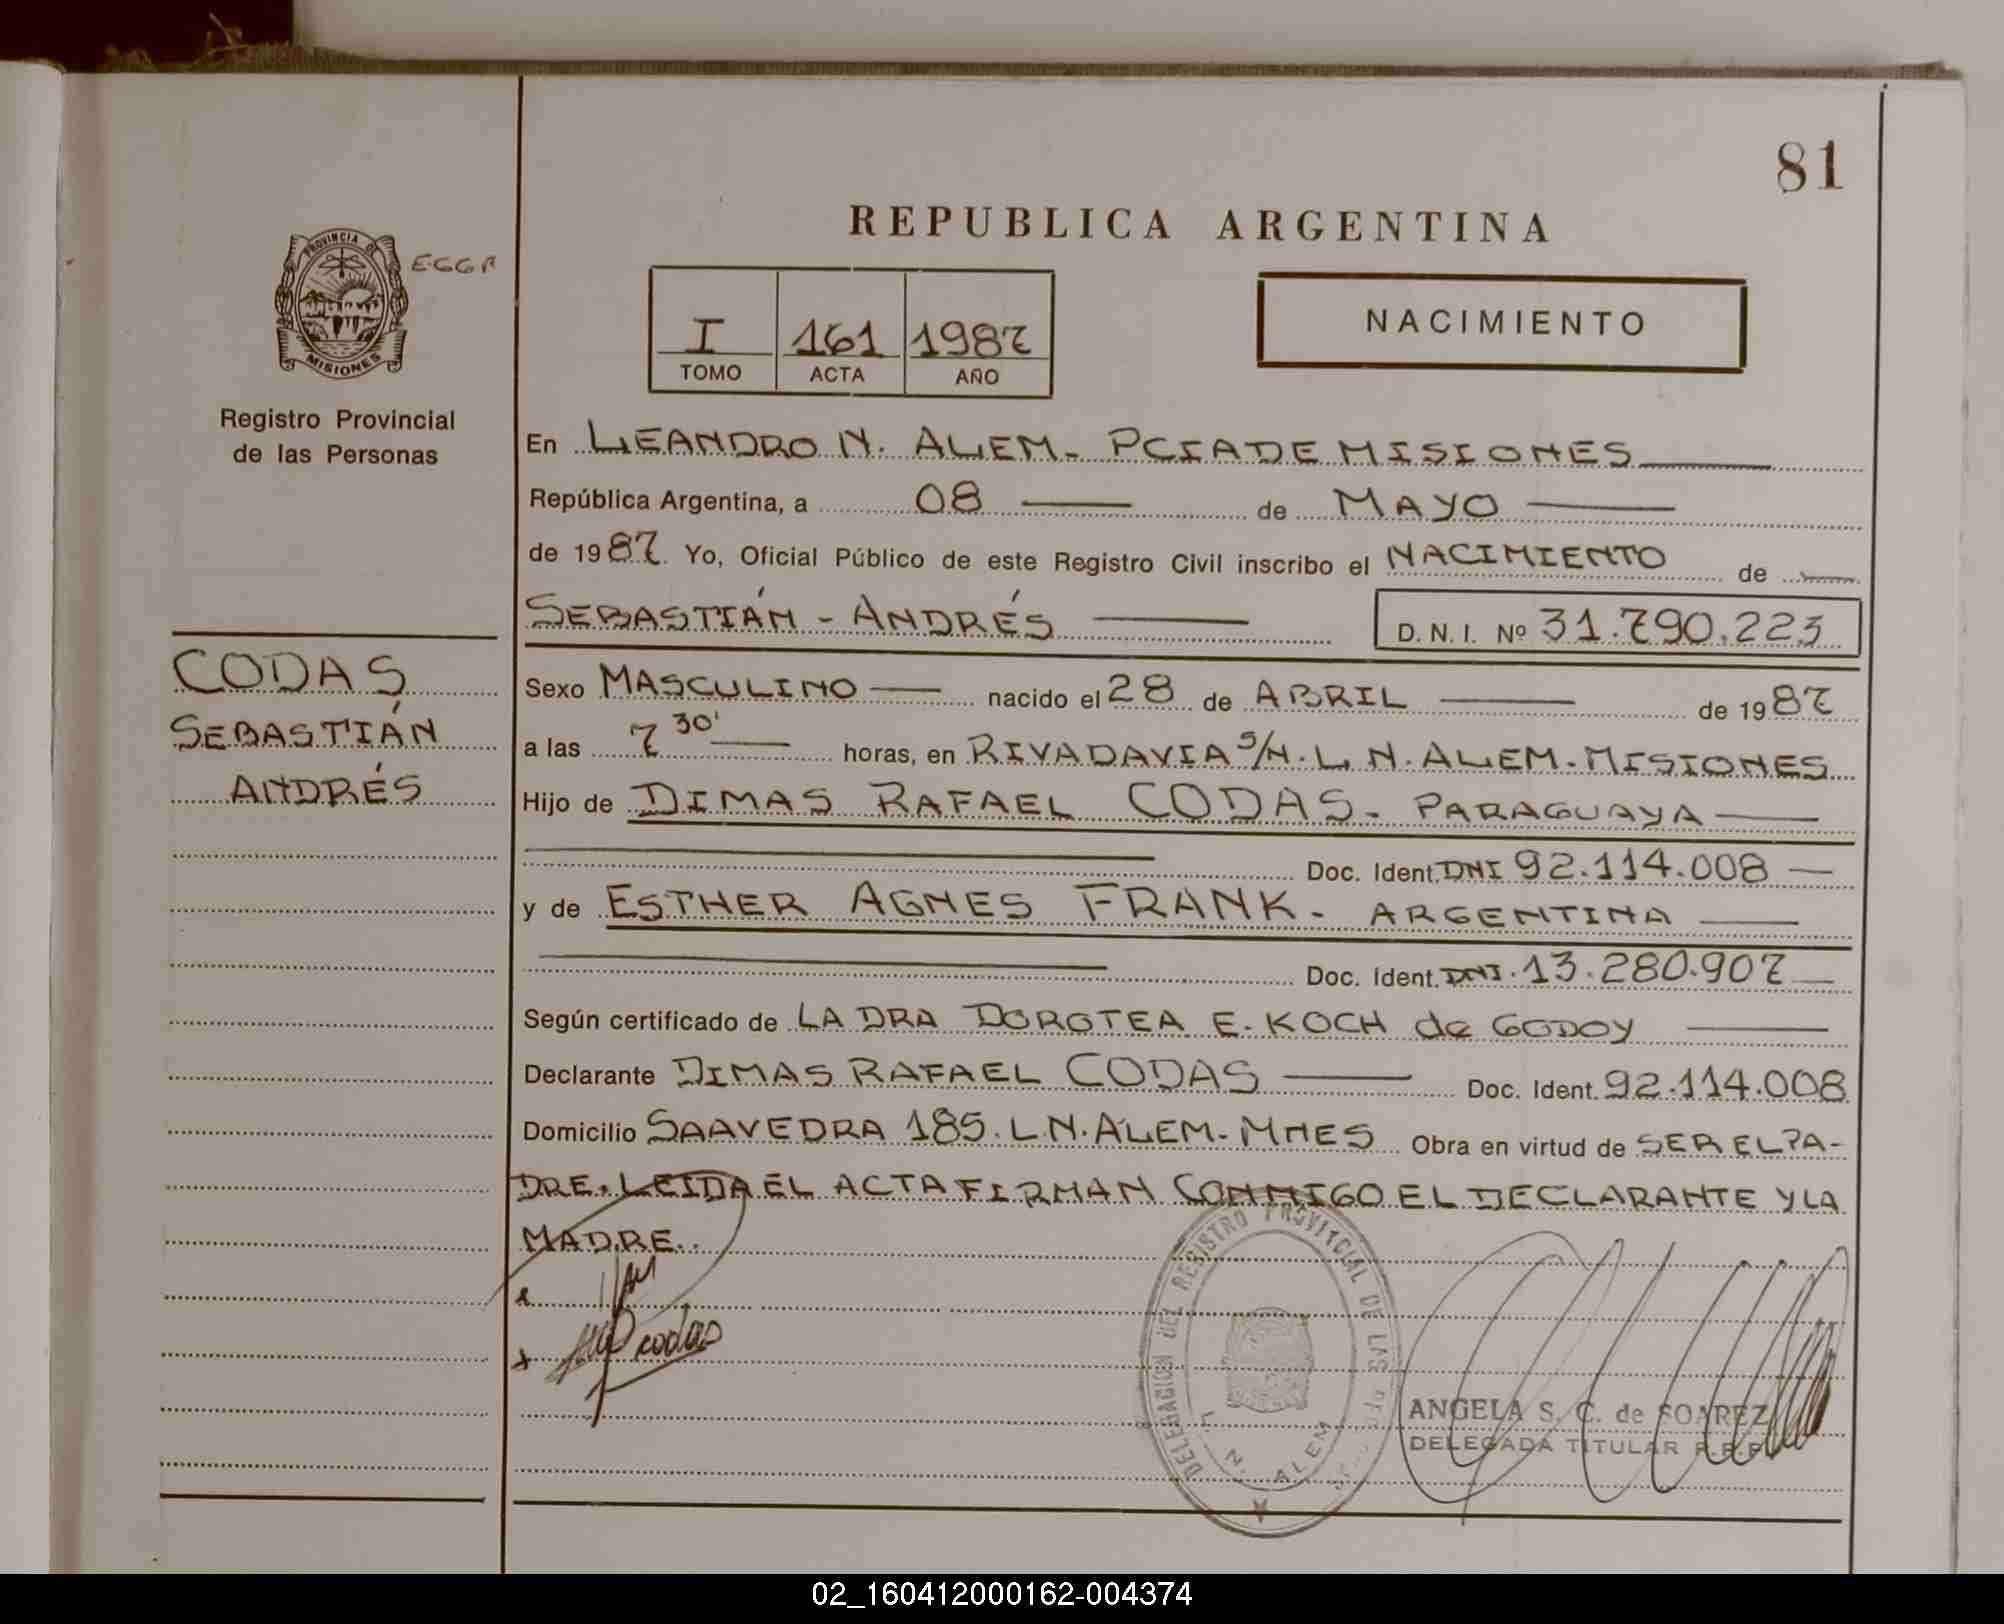 81
REPUBLICA ARGENTINA
PROVINCIA D
MISIONES
Registro Provincial
de las Personas
I 161 1987
TOMO ACTA AÑO
NACIMIENTO
En LEANDRO N. ALEM - PCIA DE MISIONES
República Argentina, a 08 de MAYO
de 1987. Yo, Oficial Público de este Registro Civil inscribo el NACIMIENTO de
SEBASTIÁN - ANDRÉS D.N.I. Nº 31.790.223
CODAS
SEBASTIÁN
ANDRÉS
Sexo MASCULINO nacido el 28 de ABRIL de 1987
a las 7 30' horas, en RIVADAVIA S/N. L. N. ALEM. MISIONES
Hijo de DIMAS RAFAEL CODAS - PARAGUAYA
Doc. Ident. DNI 92.114.008
y de ESTHER AGNES FRANK - ARGENTINA
Doc. Ident. DNI. 13.280.907
Según certificado de LA DRA DOROTEA E. KOCH de GODOY
Declarante DIMAS RAFAEL CODAS Doc. Ident. 92.114.008
Domicilio SAAVEDRA 185. L.N. ALEM - MNES Obra en virtud de SER EL PA-
DRE. LEIDA EL ACTA FIRMAN CONMIGO EL DECLARANTE Y LA
MADRE.
DELEGACION DEL REGISTRO PROVINCIAL DE LAS
L. N. ALEM
ANGELA S. C. de SOAREZ
DELEGADA TITULAR R.P.P.
02_160412000162-004374